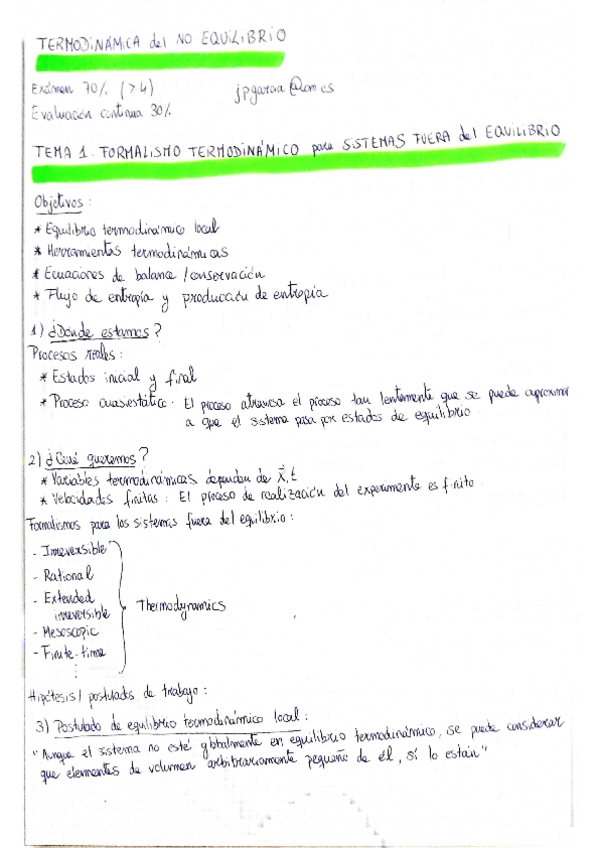 TERMODINÁMICA del NO EQUILIBRIO
Exámen 70% (>4) jpgarcia@om.es
Evaluación continua 30%
TEMA 1. FORMALISMO TERMODINÁMICO para SISTEMAS FUERA del EQUILIBRIO
Objetivos:
* Equilibrio termodinámico local
* Herramientas termodinámicas
* Ecuaciones de balance / conservación
* Flujo de entropía y producción de entropía
1) ¿Dónde estamos?
Procesos reales:
* Estados inicial y final
* Proceso cuasiestático. El proceso atraviesa el proceso tan lentamente que se puede aproximar
a que el sistema pasa por estados de equilibrio
2) ¿Qué queremos?
* Variables termodinámicas dependen de x⃗,t
* Velocidades finitas: El proceso de realización del experimento es finito
Formalismos para los sistemas fuera del equilibrio:
- Irreversible
- Rational
- Extended
irreversible
- Mesoscopic
- Finite-time
⋮
Thermodynamics
Hipótesis / postulados de trabajo:
3) Postulado de equilibrio termodinámico local:
"Aunque el sistema no esté globalmente en equilibrio termodinámico, se puede considerar
que elementos de volumen arbitrariamente pequeño de él, sí lo están"